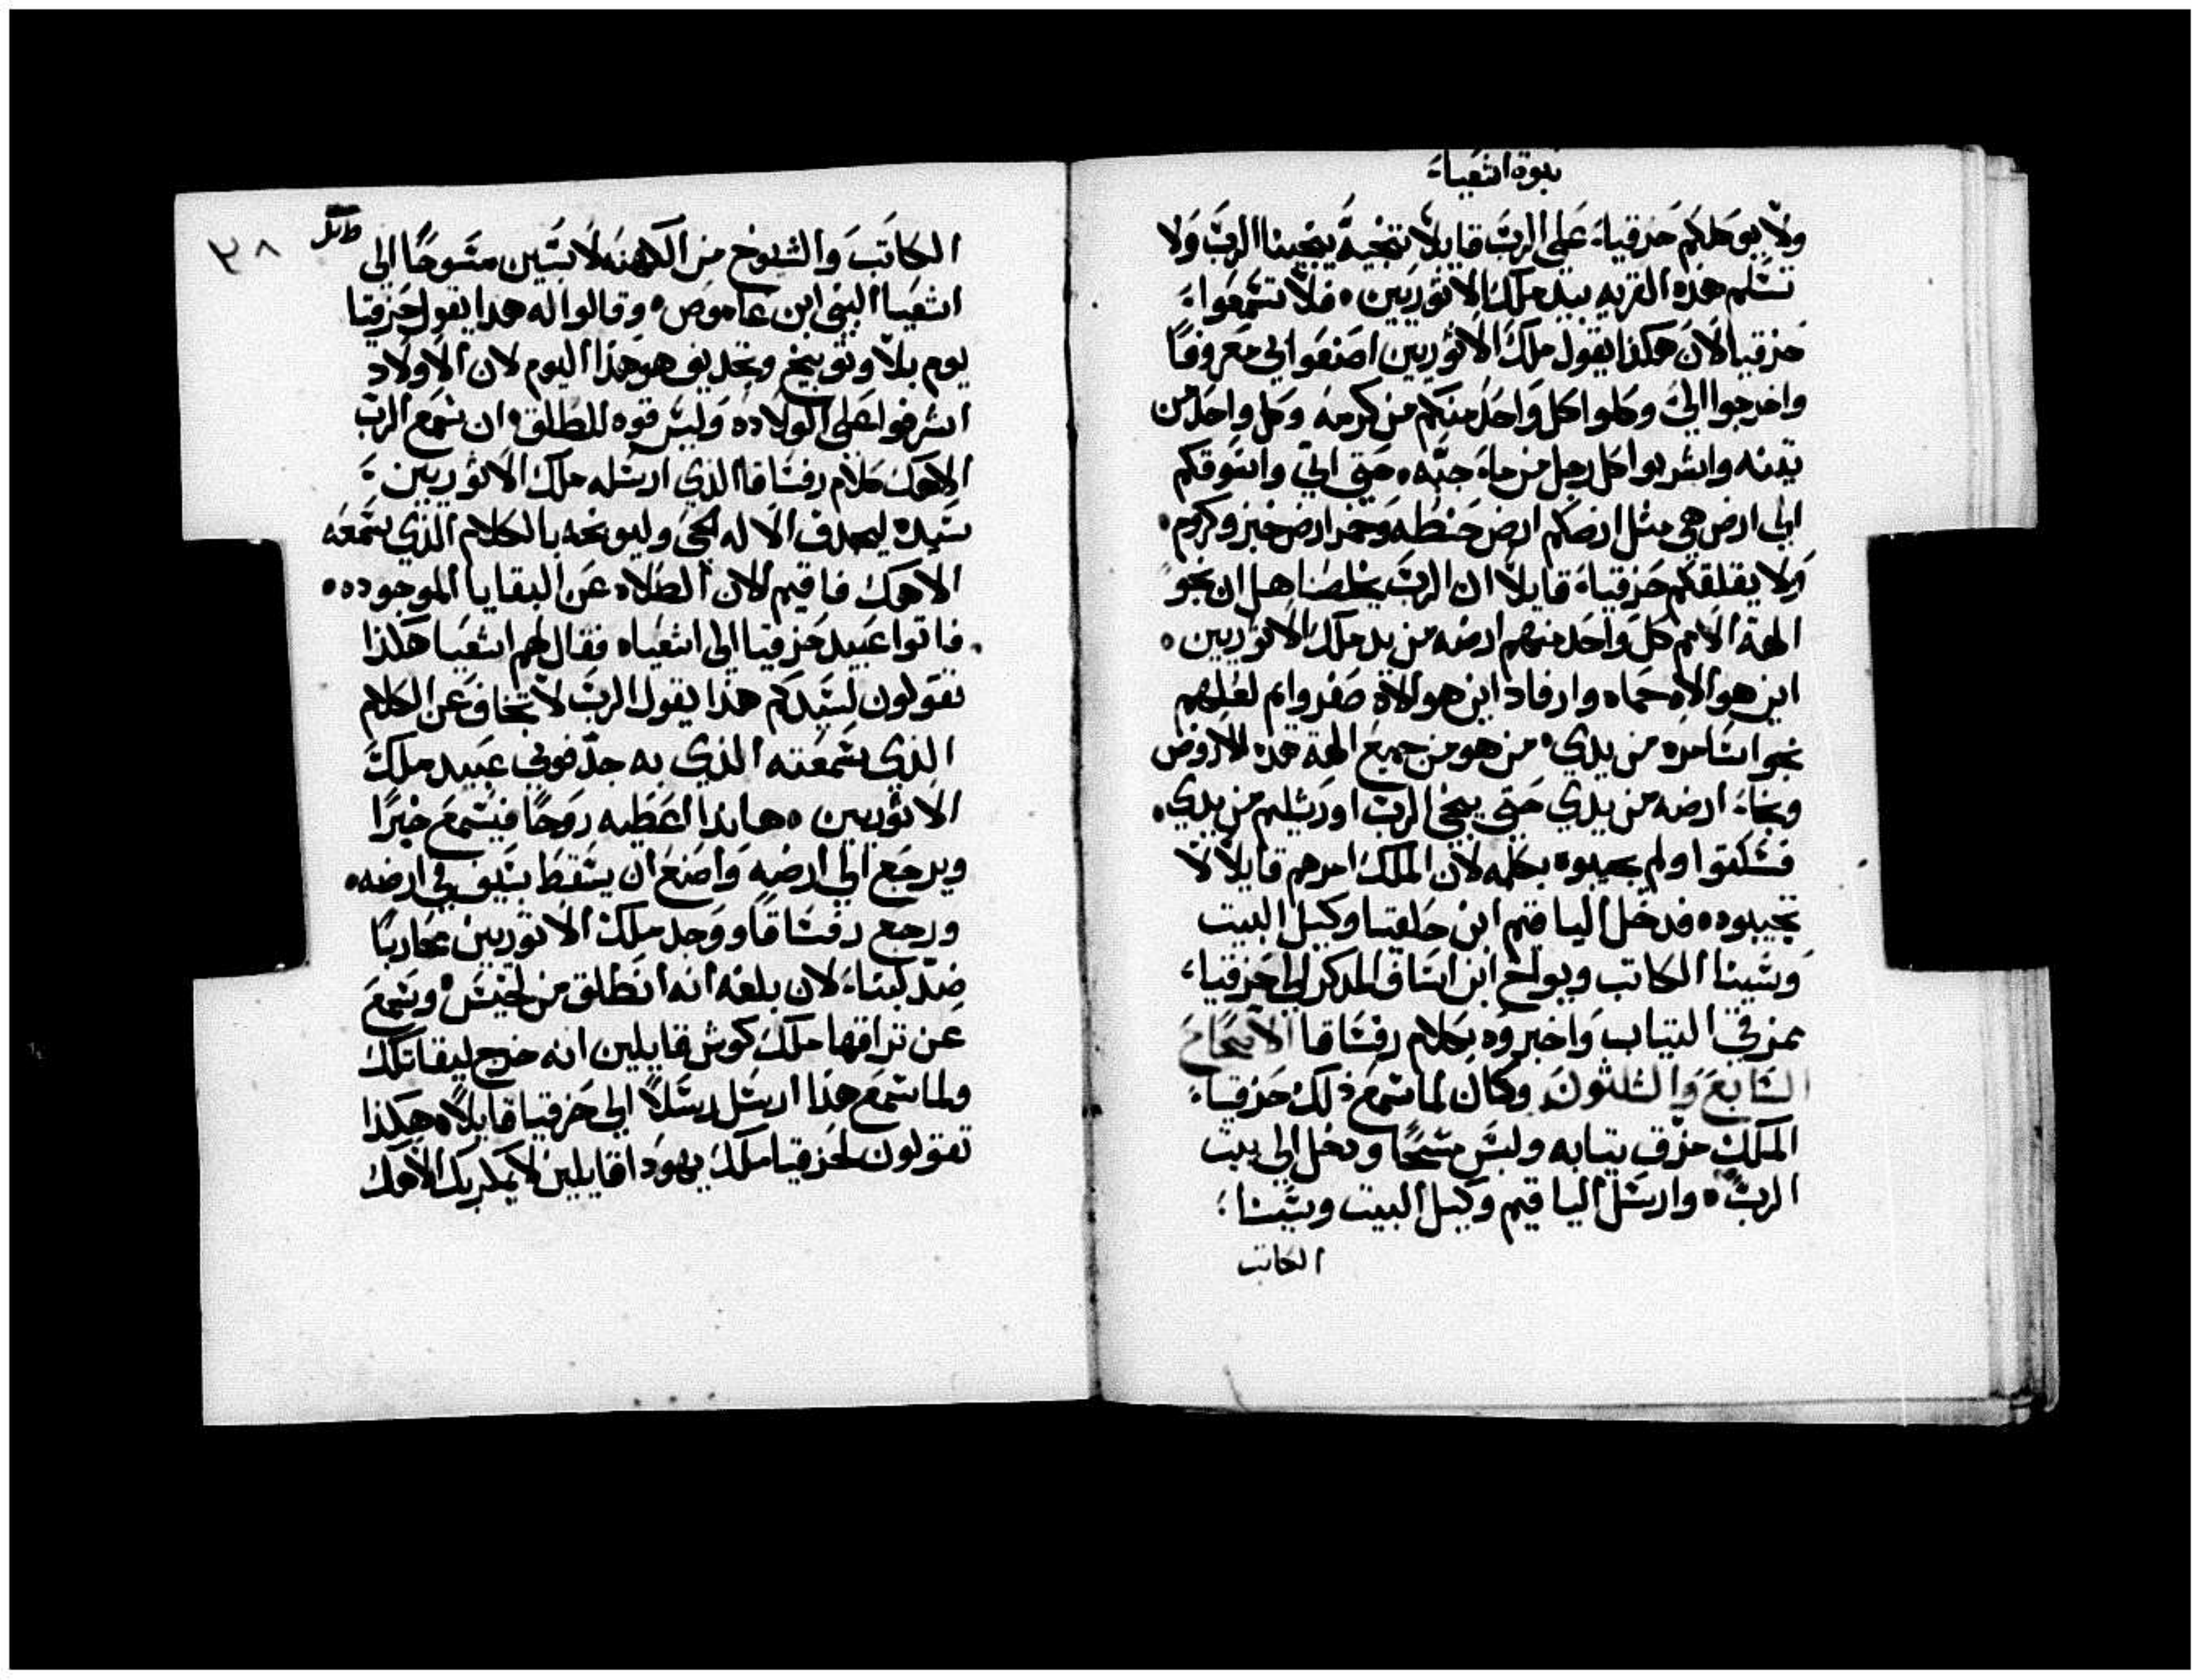 نبوة اشعياء
ولا يوكلكم حزقياء على الرب قايلا تنجية ينجينا الرب ولا
تسلم هذه القريه بيد ملك الاثوريين فلا تسمعوا
حزقيا لان هكذا يقول ملك الاثوريين اصنعوا لي معروفا
واخرجوا الي وكلوا كل واحد منكم من كرمه وكل واحد من
تينه واشربوا كل رجل من ماء جبه حتى اتي واسوقكم
الى ارض هي مثل ارضكم ارض حنطه وخمر ارض خبز وكروم
ولا يقلقكم حزقياء قايلا ان الرب يخلصنا هل ان نجو
الهة الامم كل واحد منهم ارضه من يد ملك الاثوريين
اين هو الاه حماه وارفاد اين هو الاه صفروايم لعلهم
نجوا سامره من يدي من هو من جميع الهة هذه الاروض
ونجاء ارضه من يدي حتى ينجي الرب اورشليم من يدي
فسكتوا ولم يجيبوه بكلمه لان الملك امرهم قايلا لا
تجيبوه فدخل الياقيم ابن حلقيا وكيل البيت
وشبنا الكاتب ويواخ ابن اساف المذكر الى حزقياء
ممزقي التياب واخبروه بكلام رفساقا الاصحاح
السابع والثلثون وكان لما سمع ذلك حزقياء
الملك مزق تيابه ولبس مسحا ودخل الى بيت
الرب وارسل الياقيم وكيل البيت وشبنا
الكاتب
٣٨
الكاتب والشيوخ من الكهنه لابسين مسوحا الى
اشعيا النبي ابن عاموص وقالوا له هدا يقول حزقيا
يوم بلا وتوبيخ وتجديف هو هذا اليوم لان الاولاد
اشرفوا على الولاده وليس قوه للطلق ان سمع الرب
الاهك كلام رفساقا الذي ارسله ملك الاثوريين
سيده ليجدف الاله الحي وليوبخه بالكلام الذي سمعه
الاهك فاقيم الان الصلاه عن البقايا الموجوده
فاتوا عبيد حزقيا الى اشعياه فقال لهم اشعيا هكذا
تقولون لسيدكم هذا يقول الرب لا تخاف عن الكلام
الذي سمعته الذي به جدفوني عبيد ملك
الاثوريين هانذا اعطيه روحا فيسمع خبرا
ويرجع الى ارضه واصنع ان يسقط بسيف في ارضه
ورجع رفساقا ووجد ملك الاثوريين محاربا
ضد لبناء لان بلغه انه انطلق من لخيس وسمع
عن تراقها ملك كوش قايلين انه خرج ليقاتلك
ولما سمع هذا ارسل رسلا الى حزقيا قايلا هكذا
تقولون لحزقيا ملك يهودا قايلين لا يمكر بك الاهك